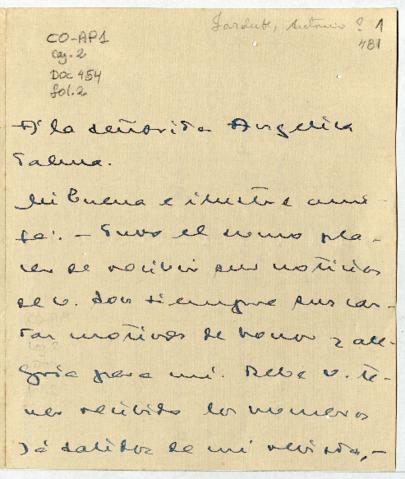 CO-AP1
Caj. 2
Doc 454
fol. 2
Antonio ? 1
481
A la señorita Angelica
Palma.
Mi buena e ilustre ami-
ga: - Tuve el sumo pla-
cer de recibir sus noticias
de v. Son siempre sus car-
tas motivos de honor y ale-
gría para mí. Debe v. te-
ner recibido los numeros
já salidos de mi revista, -